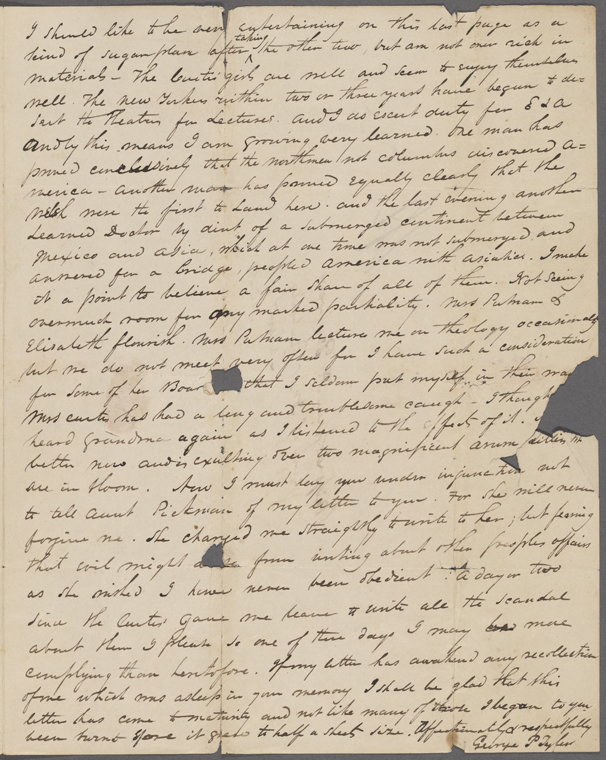 I should like to be very entertaining on this last page as a
kind of sugar plan after taking the other two, but am not over rich in
materials – The Curtis girls are well and seem to enjoy themselves
well. The new Yorkers within two or three years have begun to de=
sert the Theatres for Lectures. And I do escort duty for E & A
And by this means I am growing very learned. One man has
proved conclusively that the northmen not Columbus discovered A=
merica – Another man has proved equally clearly that the
Welsh were the first to land here. and the last evening another
Learned Doctor by dint of a submerged continent between
Mexico and Asia, which at one time was not submerged and
answered for a bridge, peopled America with Asiatics. I make
it a point to believe a fair share of all of them. Not seeing
overmuch room for any marked partiality. Mrs Putnam &
Elisabeth flourish. Mrs Putnam lectures me on theology occasionally
but we do not meet very often for I have such a consideration
for some of her Boar that I seldom put myself in their way
Mrs Curtis has had a long and troublesome cough – I thought
heard grandma again as I listened to the effects of it.
better now and is exulting over two magnificent
are in bloom. Now I must lay you under injunction not
to tell Aunt Pickman of my letter to you. For she will never
forgive me. She charged me straightly to write to her; but fearing
that evil might from writing about other peoples affairs
as she wished I have never been obedient. A day or two
since the Curtis' gave me leave to write all the scandal
about them I please so one of these days I may be more
complying than heretofore. If my letter has awakened any recollection
of me which was asleep in your memory I shall be glad that this
letter has come to maturity and not like many of those I began to you
been burnt before it grew to half a sheets size. Affectionately & respectfully
George P Tyler